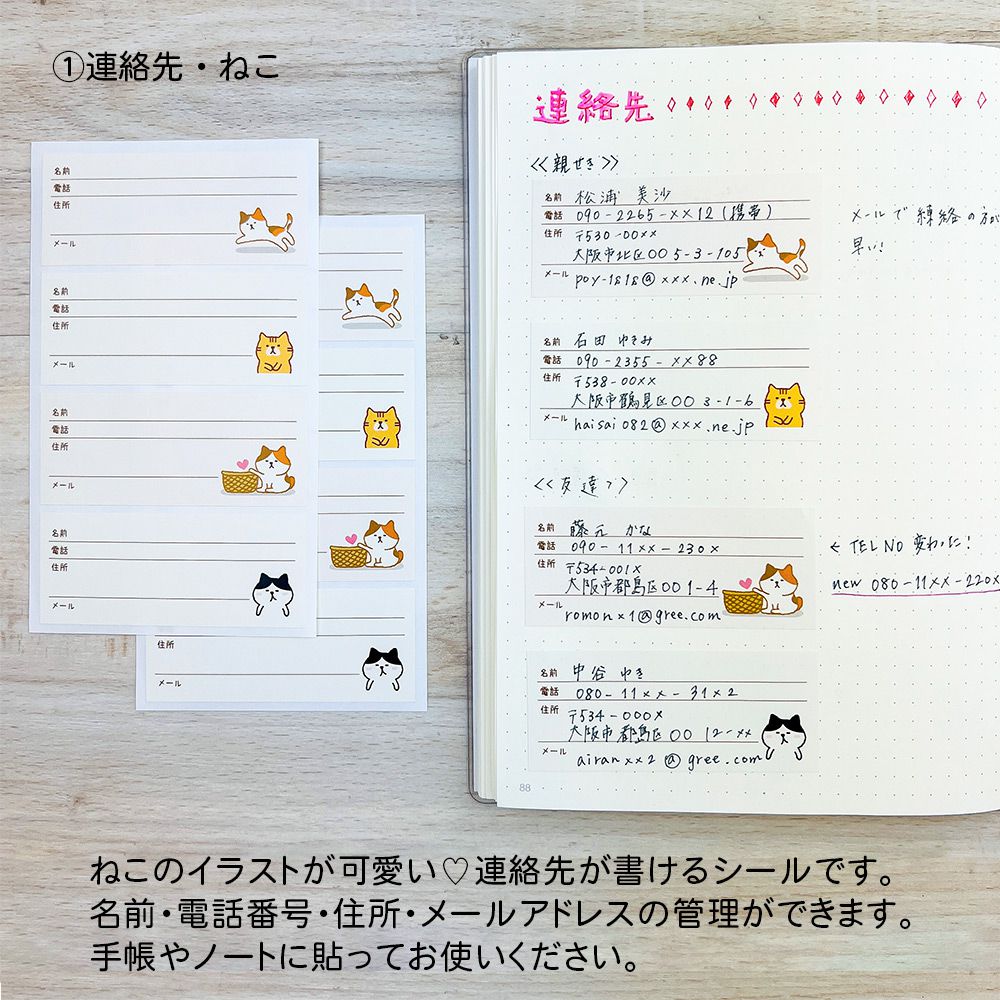 ①連絡先・ねこ
名前
電話
住所
メール
名前
電話
住所
メール
名前
電話
住所
メール
名前
電話
住所
メール
住所
メール
連絡先
<<親せき>>
名前 松浦 美沙
電話 090-2265-××12(携帯)
住所 〒530-00××
大阪市北区00 5-3-105
メール poy-1818@×××.ne.jp
メールで練絡の方が
早い!
名前 石田 ゆきみ
電話 090-2355-××88
住所 〒538-00××
大阪市鶴見区00 3-1-6
メール haisai082@×××.ne.jp
<<友達>>
名前 藤元 かな
電話 090-11××-230×
住所 〒534-001×
大阪市都島区00 1-4
メール romon×1@gree.com
← TEL NO 変わった!
new 080-11××-220×
名前 中谷 ゆき
電話 080-11××-31×2
住所 〒534-000×
大阪市都島区00 12-××
メール airan××2@gree.com
88
ねこのイラストが可愛い♡連絡先が書けるシールです。
名前・電話番号・住所・メールアドレスの管理ができます。
手帳やノートに貼ってお使いください。